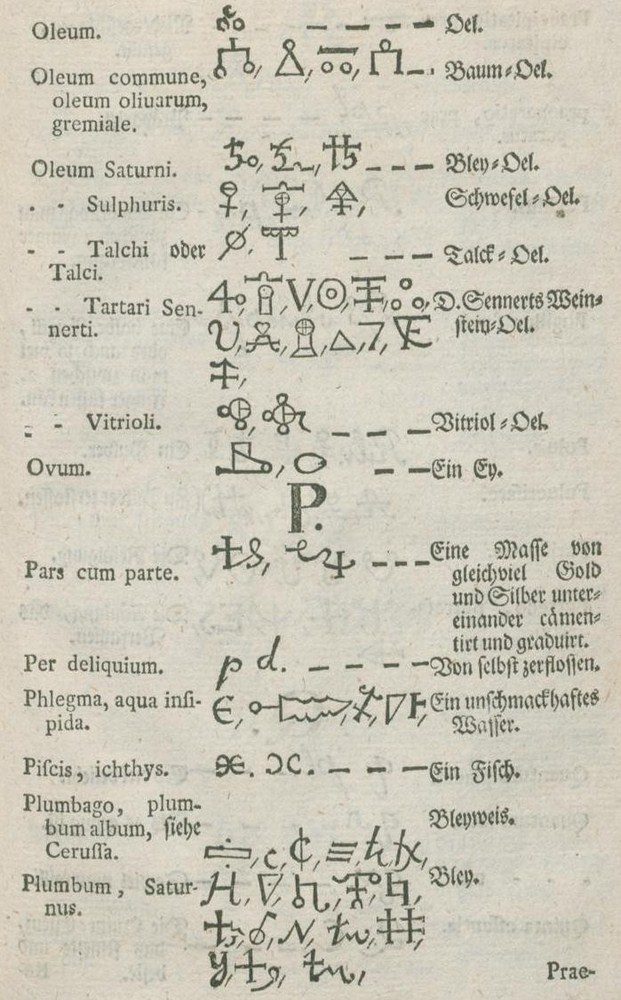 Oleum. Oel.
Oleum commune, Baum-Oel.
oleum oliuarum,
gremiale.
Oleum Saturni. Bley-Oel.
- - Sulphuris. Schwefel-Oel.
- - Talchi oder Talck-Oel.
Talci.
- - Tartari Sen- D. Sennerts Wein-
nerti. stein-Oel.
- - Vitrioli. Vitriol-Oel.
Ovum. Ein Ey.
P.
Pars cum parte. Eine Maſſe von
gleichviel Gold
und Silber unter-
einander cämen-
tirt und graduirt.
Per deliquium. p d. Von ſelbſt zerfloſſen.
Phlegma, aqua inſi- Ein unſchmackhaftes
pida. Waſſer.
Piſcis, ichthys. Ein Fiſch.
Plumbago, plum- Bleyweis.
bum album, ſiehe
Ceruſſa.
Plumbum, Satur- Bley.
nus.
Prae-